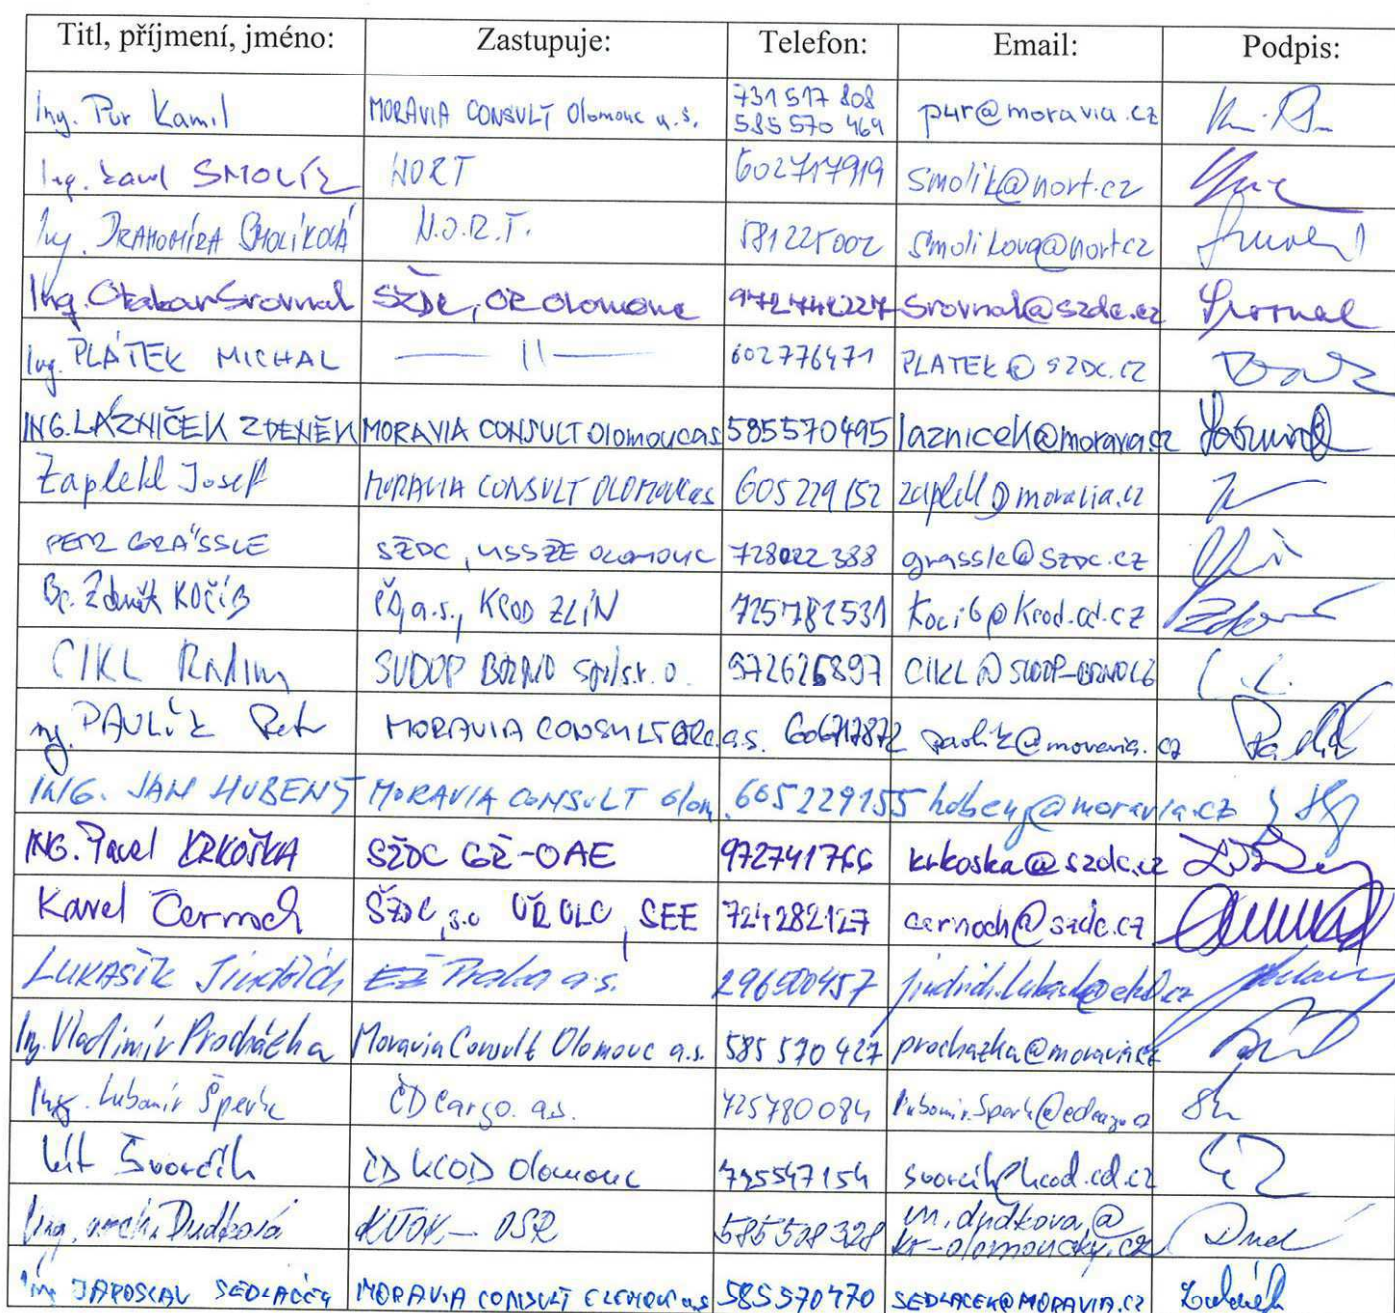 Titl, příjmení, jméno: Zastupuje: Telefon: Email: Podpis:
Ing. Pur Kamil MORAVIA CONSULT Olomouc a.s. 731 517 808 pur@moravia.cz
585 570 469
Ing. Karel SMOLÍK NORT 602717919 smolik@nort.cz
Ing. DRAHOMÍRA SMOLÍKOVÁ N.O.R.T. 581225002 smolikova@nort.cz
Ing. Otakar Srovnal SŽDC, OŘ Olomouc 972742227 srovnal@szdc.cz
Ing. PLÁTEK MICHAL —— 11 —— 602776471 PLATEK@SZDC.CZ
ING. LÁZNIČEK ZDENĚK MORAVIA CONSULT Olomouc as 585570495 laznicek@moravia.cz
Zapletl Josef MORAVIA CONSULT OLOMOUC as 605 229 152 zapletl@moravia.cz
PETR GRÄSSLE SŽDC, USSŽE OLOMOUC 728022388 grassle@szdc.cz
Bc. Zdeněk KOČÍB ČD, a.s., KCOD ZLÍN 725782531 kocib@kcod.cd.cz
CIKL Radim SUDOP BRNO spol s.r.o. 972625897 CIKL@SUDOP-BRNO.CZ
Ing. PAVLÍK Petr MORAVIA CONSULT a.s. 606717872 pavlik@moravia.cz
ING. JAN HUBENÝ MORAVIA CONSULT Olom. 605229155 hubeny@moravia.cz
ING. Pavel KRKOŠKA SŽDC GŘ-OAE 972741766 krkoska@szdc.cz
Karel Černoch SŽDC, s.o OŘ OLC, SEE 724282127 cernoch@szdc.cz
LUKAŠÍK Jindřich EŽ Praha a.s. 296500457
Ing. Vladimír Procházka Moravia Consult Olomouc a.s. 585 570 427 prochazka@moravia.cz
Ing. Lubomír Šperk ČD Cargo. a.s. 725780084
Vít Švorčík ČD KCOD Olomouc 725547154 svorcik@kcod.cd.cz
Ing. arch. Dudková KÚOK - OSR 585 508 328 m.dudkova@
kr-olomoucky.cz
Ing JAROSLAV SEDLÁČEK MORAVIA CONSULT OLOMOUC as 585570470 SEDLACEK@MORAVIA.CZ